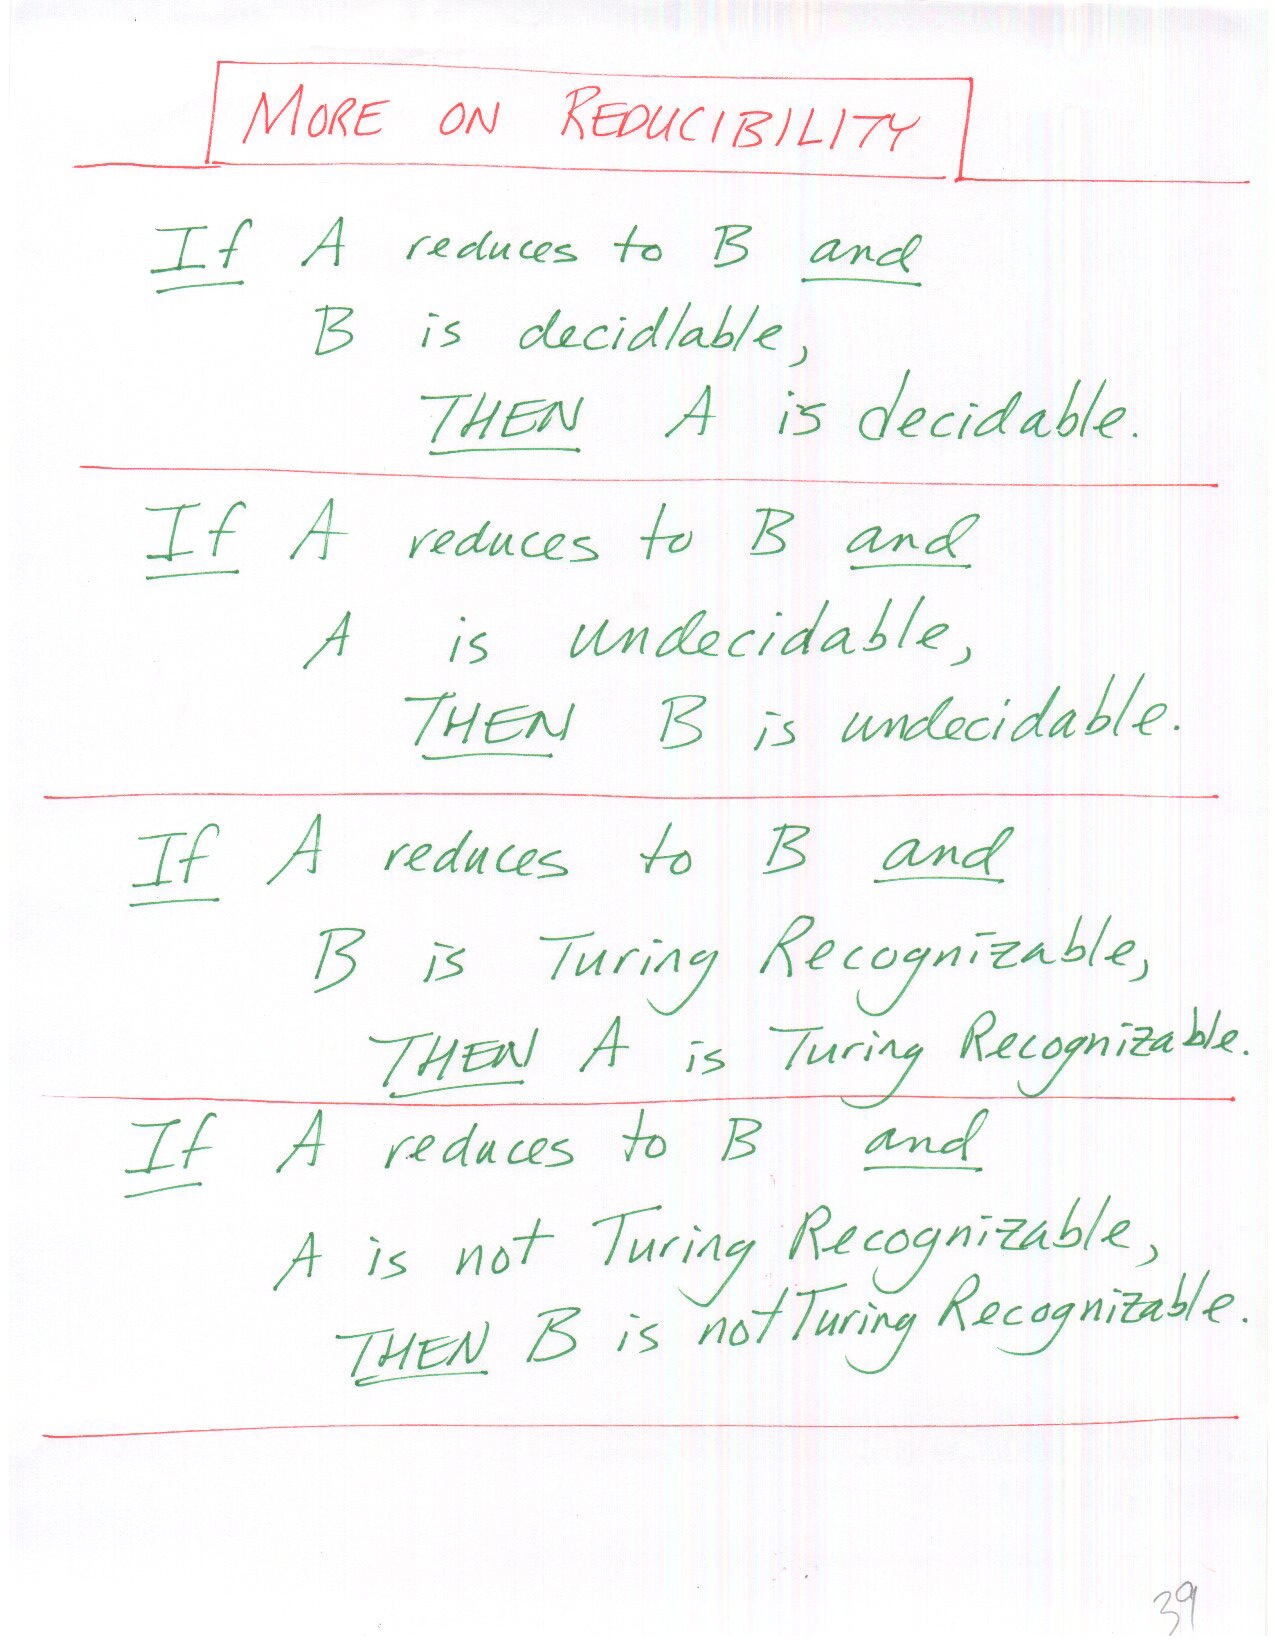 MORE ON REDUCIBILITY
If A reduces to B and
B is decidlable,
THEN A is decidable.
If A reduces to B and
A is undecidable,
THEN B is undecidable.
If A reduces to B and
B is Turing Recognizable,
THEN A is Turing Recognizable.
If A reduces to B and
A is not Turing Recognizable,
THEN B is not Turing Recognizable.
39